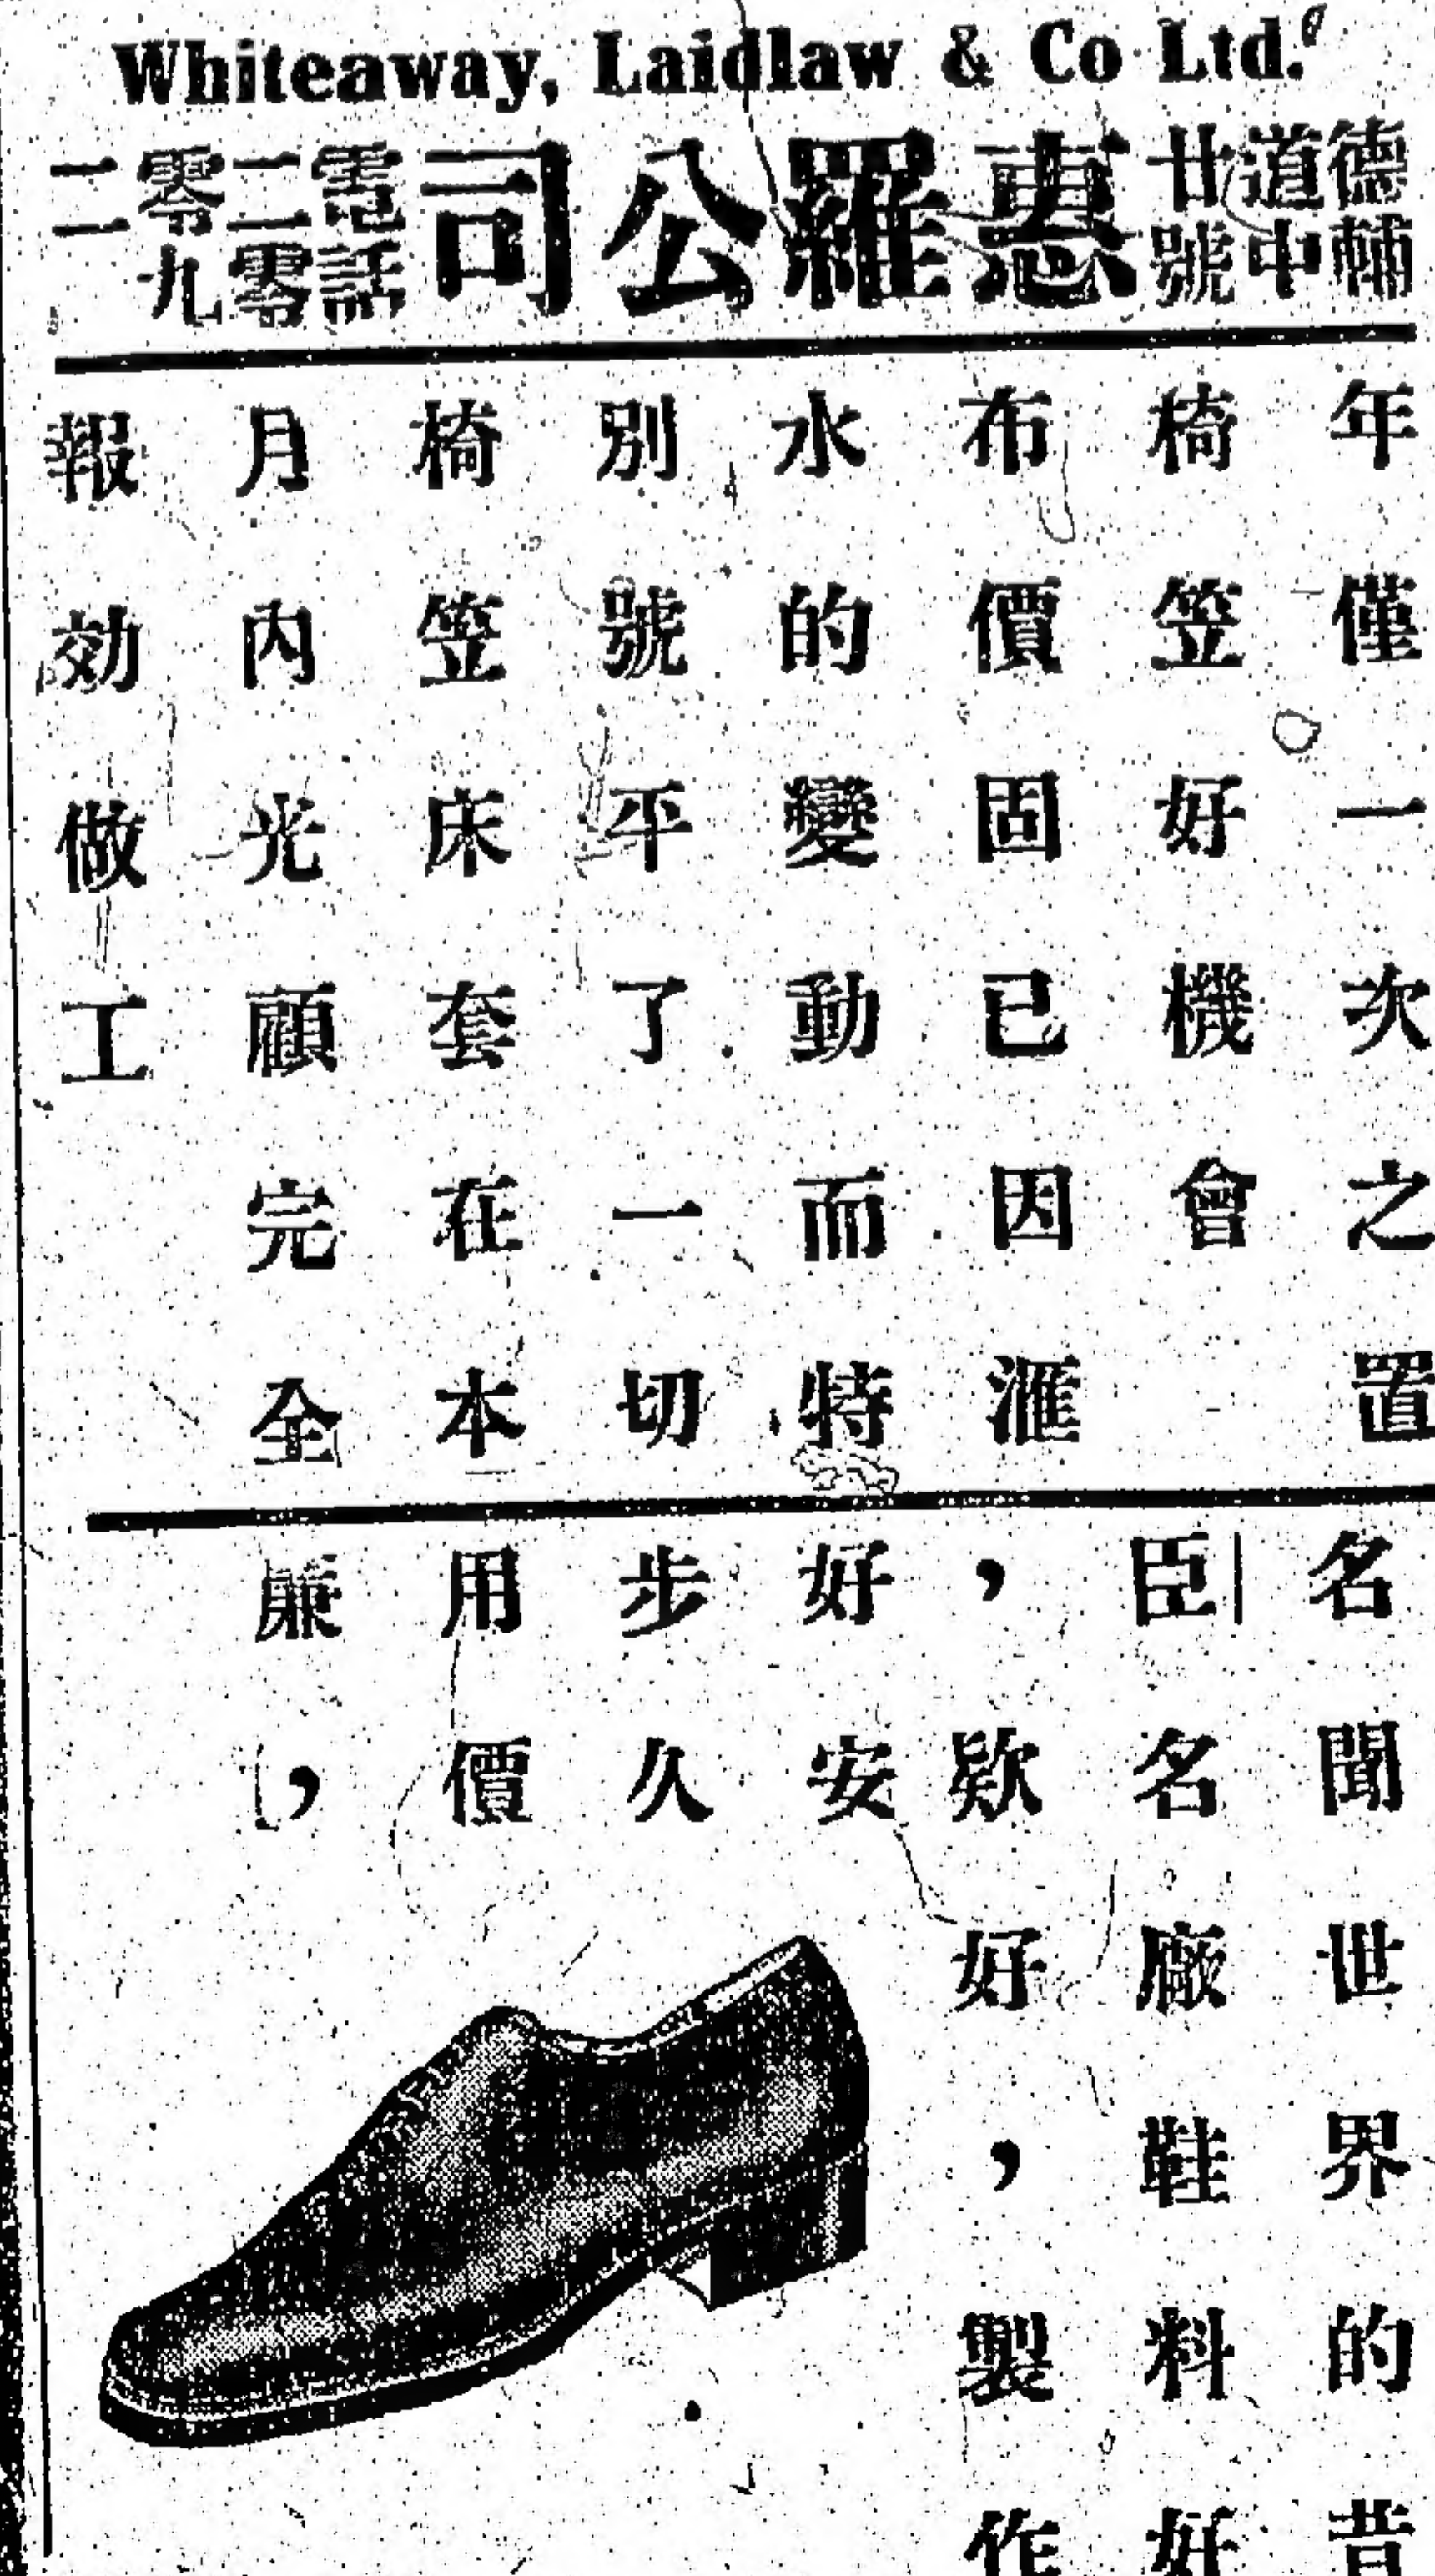 Whiteaway, Laidlaw & Co Ltd.
德輔道中廿號
惠羅公司
電話二零零九二
年僅一次之置
椅笠好機會
布價固已因滙
水的變動而特
別號平了一切
椅笠床套在本
月內光顧完全
報効做工
名聞世界的昔
臣名廠鞋料好
，欵好，製作
好安
步久
用價
廉，